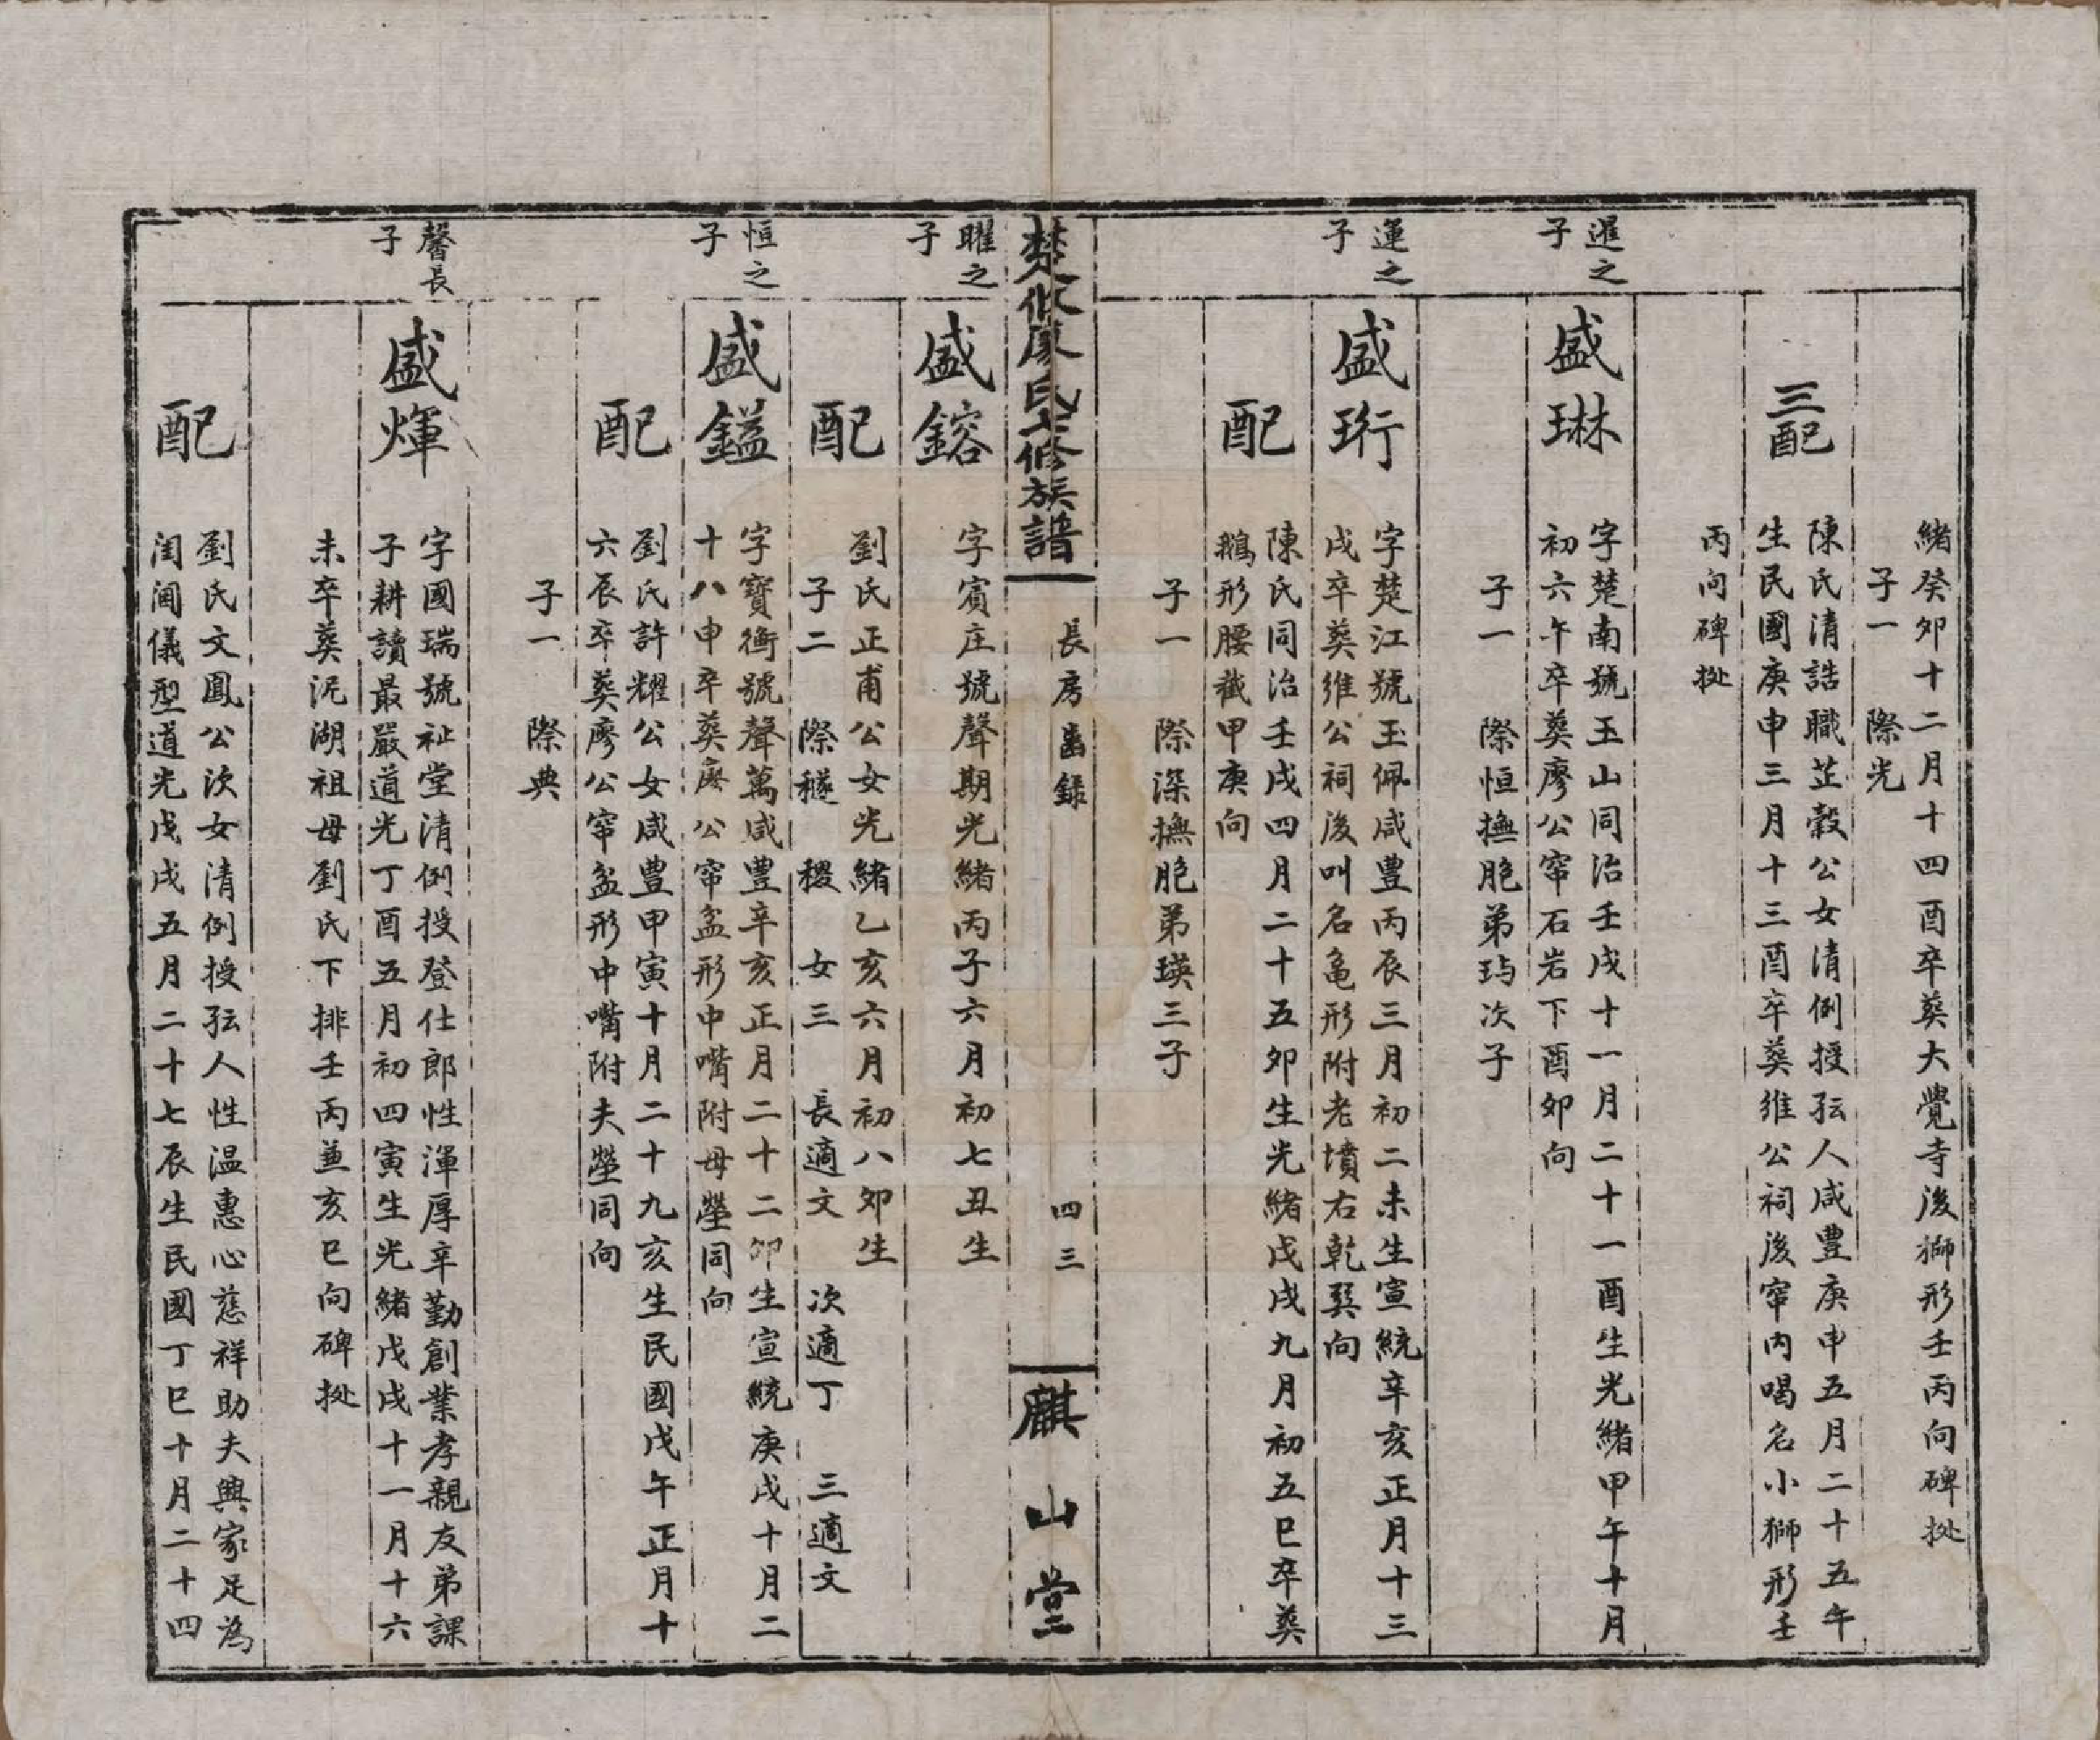 緒癸卯十二月十四酉卒葬大覺寺後獅形壬丙向碑㧻
子一　際光
三配
陳氏清誥職芷穀公女清例授孺人咸豐庚申五月二十五午
生民國庚申三月十三酉卒葬維公祠後窜内喝名小獅形壬
丙向碑㧻
暹之子
盛琳
字楚南號玉山同治壬戌十一月二十一酉生光緒甲午十月
初六午卒葬廖公窜石岩下酉卯向
子一　際恒撫胞弟玙次子
運之子
盛珩
字楚江號玉佩咸豐丙辰三月初二未生宣統辛亥正月十三
戌卒葬維公祠後叫名龜形附老墳右乾巽向
配
陳氏同治壬戌四月二十五卯生光緒戊戌九月初五巳卒葬
鵝形腰截甲庚向
子一　際深撫胞弟瑛三子
楚攸廖氏七修族譜
長房齒錄
四三
麒山堂
曜之子
盛鎔
字賓庄號聲期光緒丙子六月初七丑生
配
劉氏正甫公女光緒乙亥六月初八卯生
子二　際穟　稷　女三　長適文　次適丁　三適文
恒之子
盛鎰
字寶衡號聲萬咸豐辛亥正月二十二卯生宣統庚戌十月二
十八申卒葬廖公窜盆形中嘴附母塋同向
配
劉氏許耀公女咸豐甲寅十月二十九亥生民國戊午正月十
六辰卒葬廖公窜盆形中嘴附夫塋同向
子一　際典
馨長子
盛煇
字國瑞號祉堂清例授登仕郎性渾厚辛勤創業孝親友弟課
子耕讀最嚴道光丁酉五月初四寅生光緒戊戌十一月十六
未卒葬泥湖祖母劉氏下排壬丙兼亥巳向碑㧻
配
劉氏文鳳公次女清例授孺人性温惠心慈祥助夫興家足為
閨閫儀型道光戊戌五月二十七辰生民國丁巳十月二十四